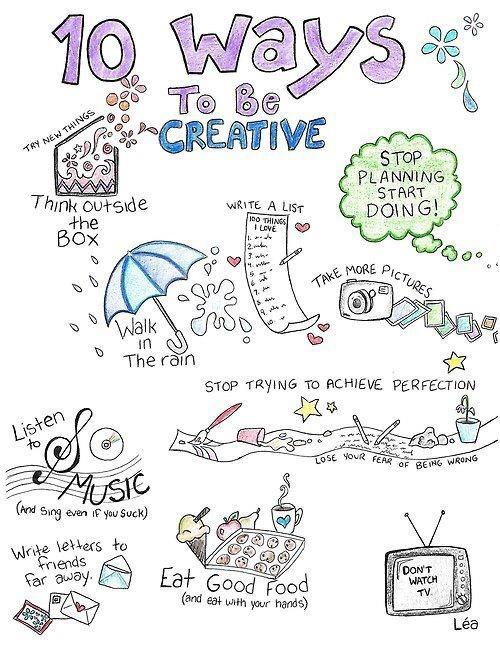 10 Ways
To Be
CREATIVE
TRY NEW THINGS
Think outside
the
BOX
STOP
PLANNING
START
DOING!
WRITE A LIST
100 THINGS
I LOVE
1.
2.
3.
4.
5.
6.
7.
8.
9.
10.
TAKE MORE PICTURES
Walk
in
The rain
STOP TRYING TO ACHIEVE PERFECTION
LOSE YOUR FEAR OF BEING WRONG
Listen
to
MUSIC
(And Sing even if you suck)
Write letters to
friends
far away.
Eat Good Food
(and eat with your hands)
DON'T
WATCH
TV.
Léa